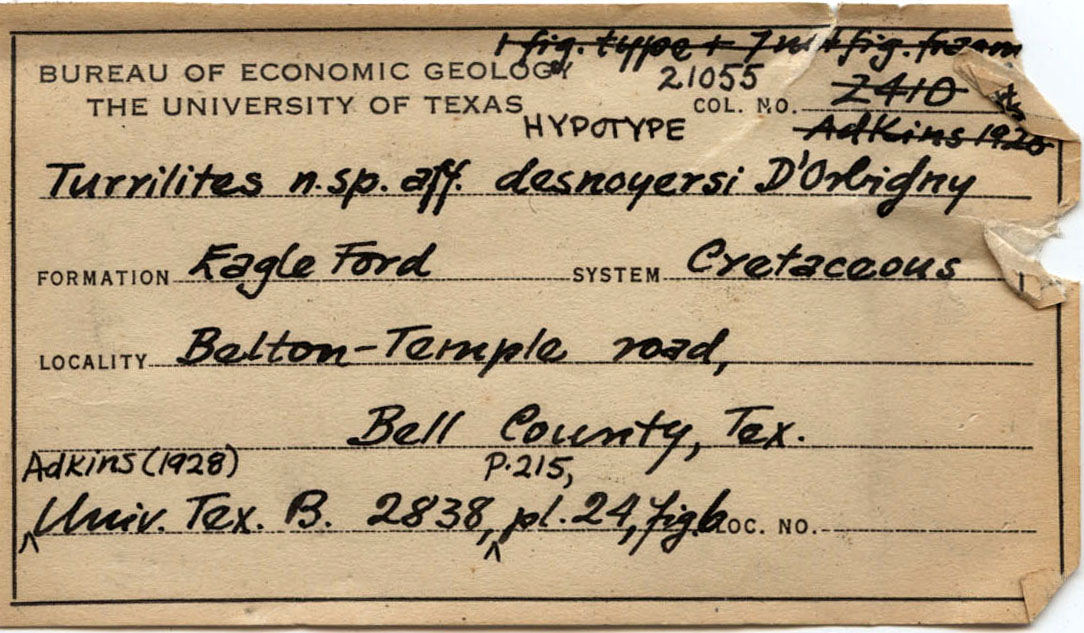 1 fig. type + 7 not fig. from
BUREAU OF ECONOMIC GEOLOGY
21055
THE UNIVERSITY OF TEXAS COL. NO. 2410
HYPOTYPE Adkins 1928
Turrilites n.sp. aff. desnoyersi D'Orbigny
FORMATION Eagle Ford SYSTEM Cretaceous
LOCALITY Belton-Temple road,
Bell County, Tex.
Adkins (1928) P.215,
Univ. Tex. B. 2838, pl. 24, fig. 6 LOC. NO.